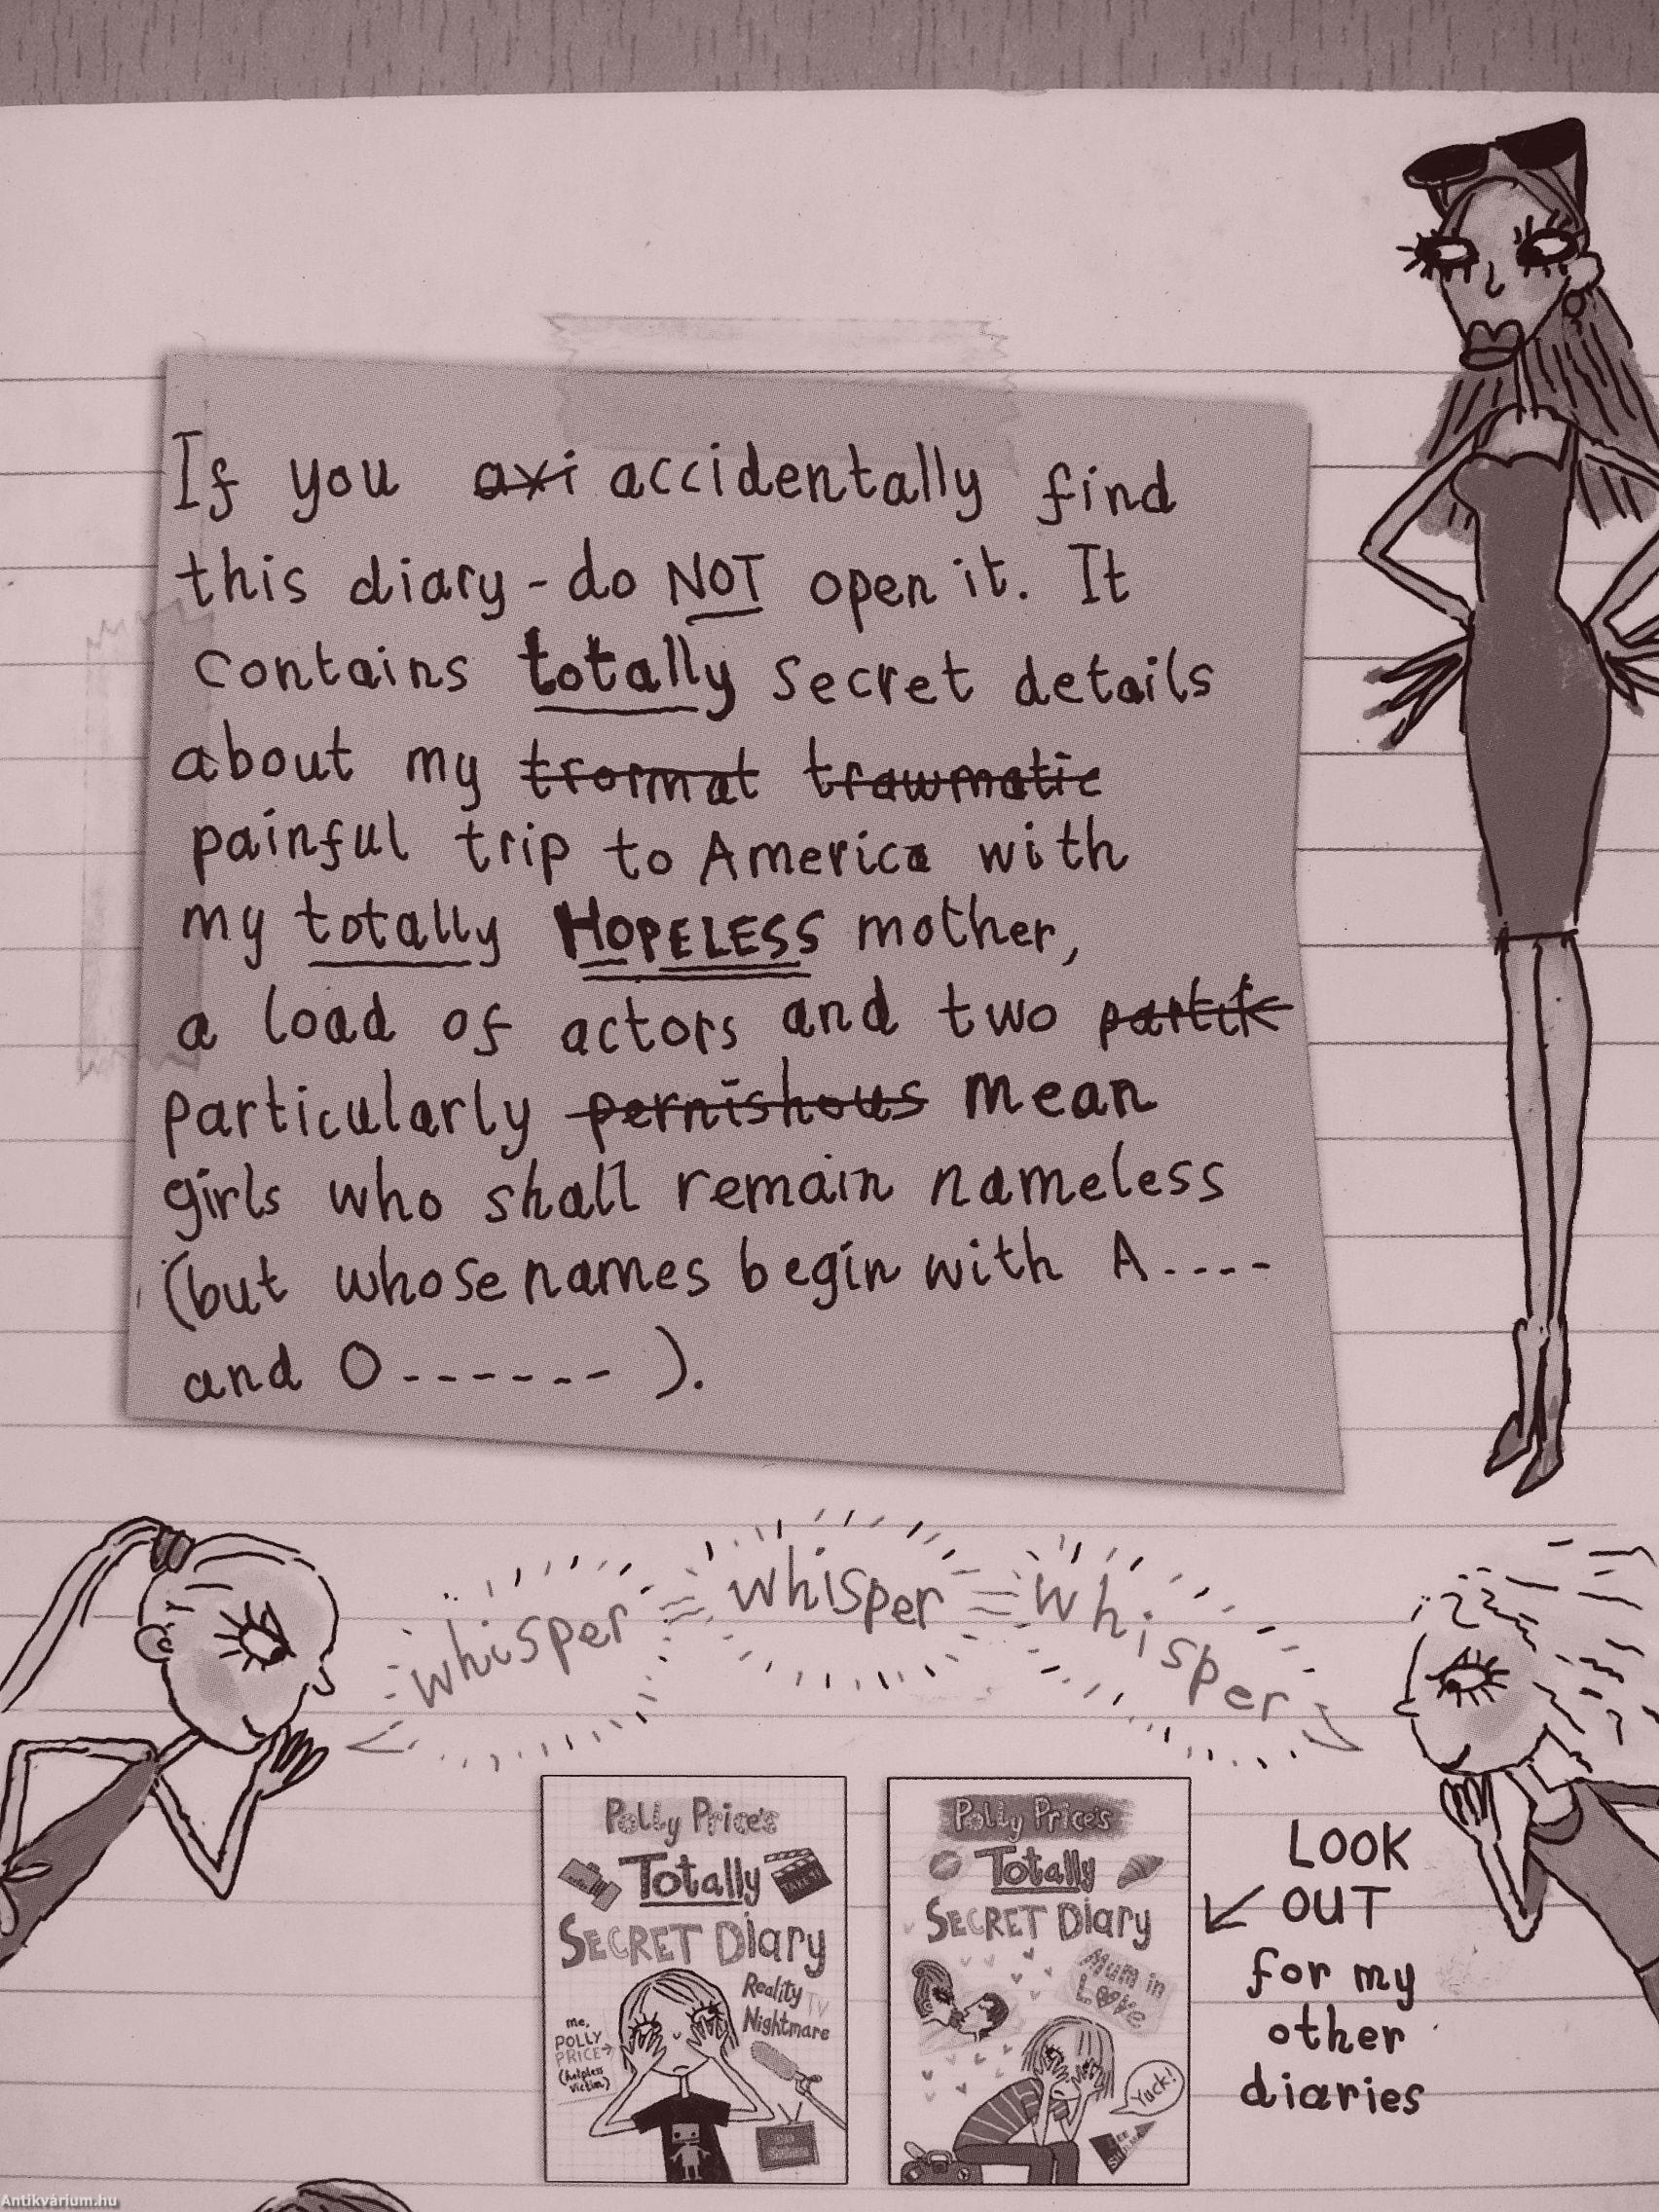 If you axi accidentally find
this diary - do NOT open it. It
contains totally secret details
about my tromat trawmatic
painful trip to America with
my totally HOPELESS mother,
a load of actors and two partik
particularly pernishous mean
girls who shall remain nameless
(but whose names begin with A----
and O------).
whisper = whisper = whisper
Polly Price's
Totally
SECRET Diary
Reality TV
Nightmare
me,
POLLY
PRICE
(helpless
victim)
Polly Price's
Totally
SECRET Diary
Mum in
Love
Yuck!
LOOK
OUT
for my
other
diaries
Antikvárium.hu